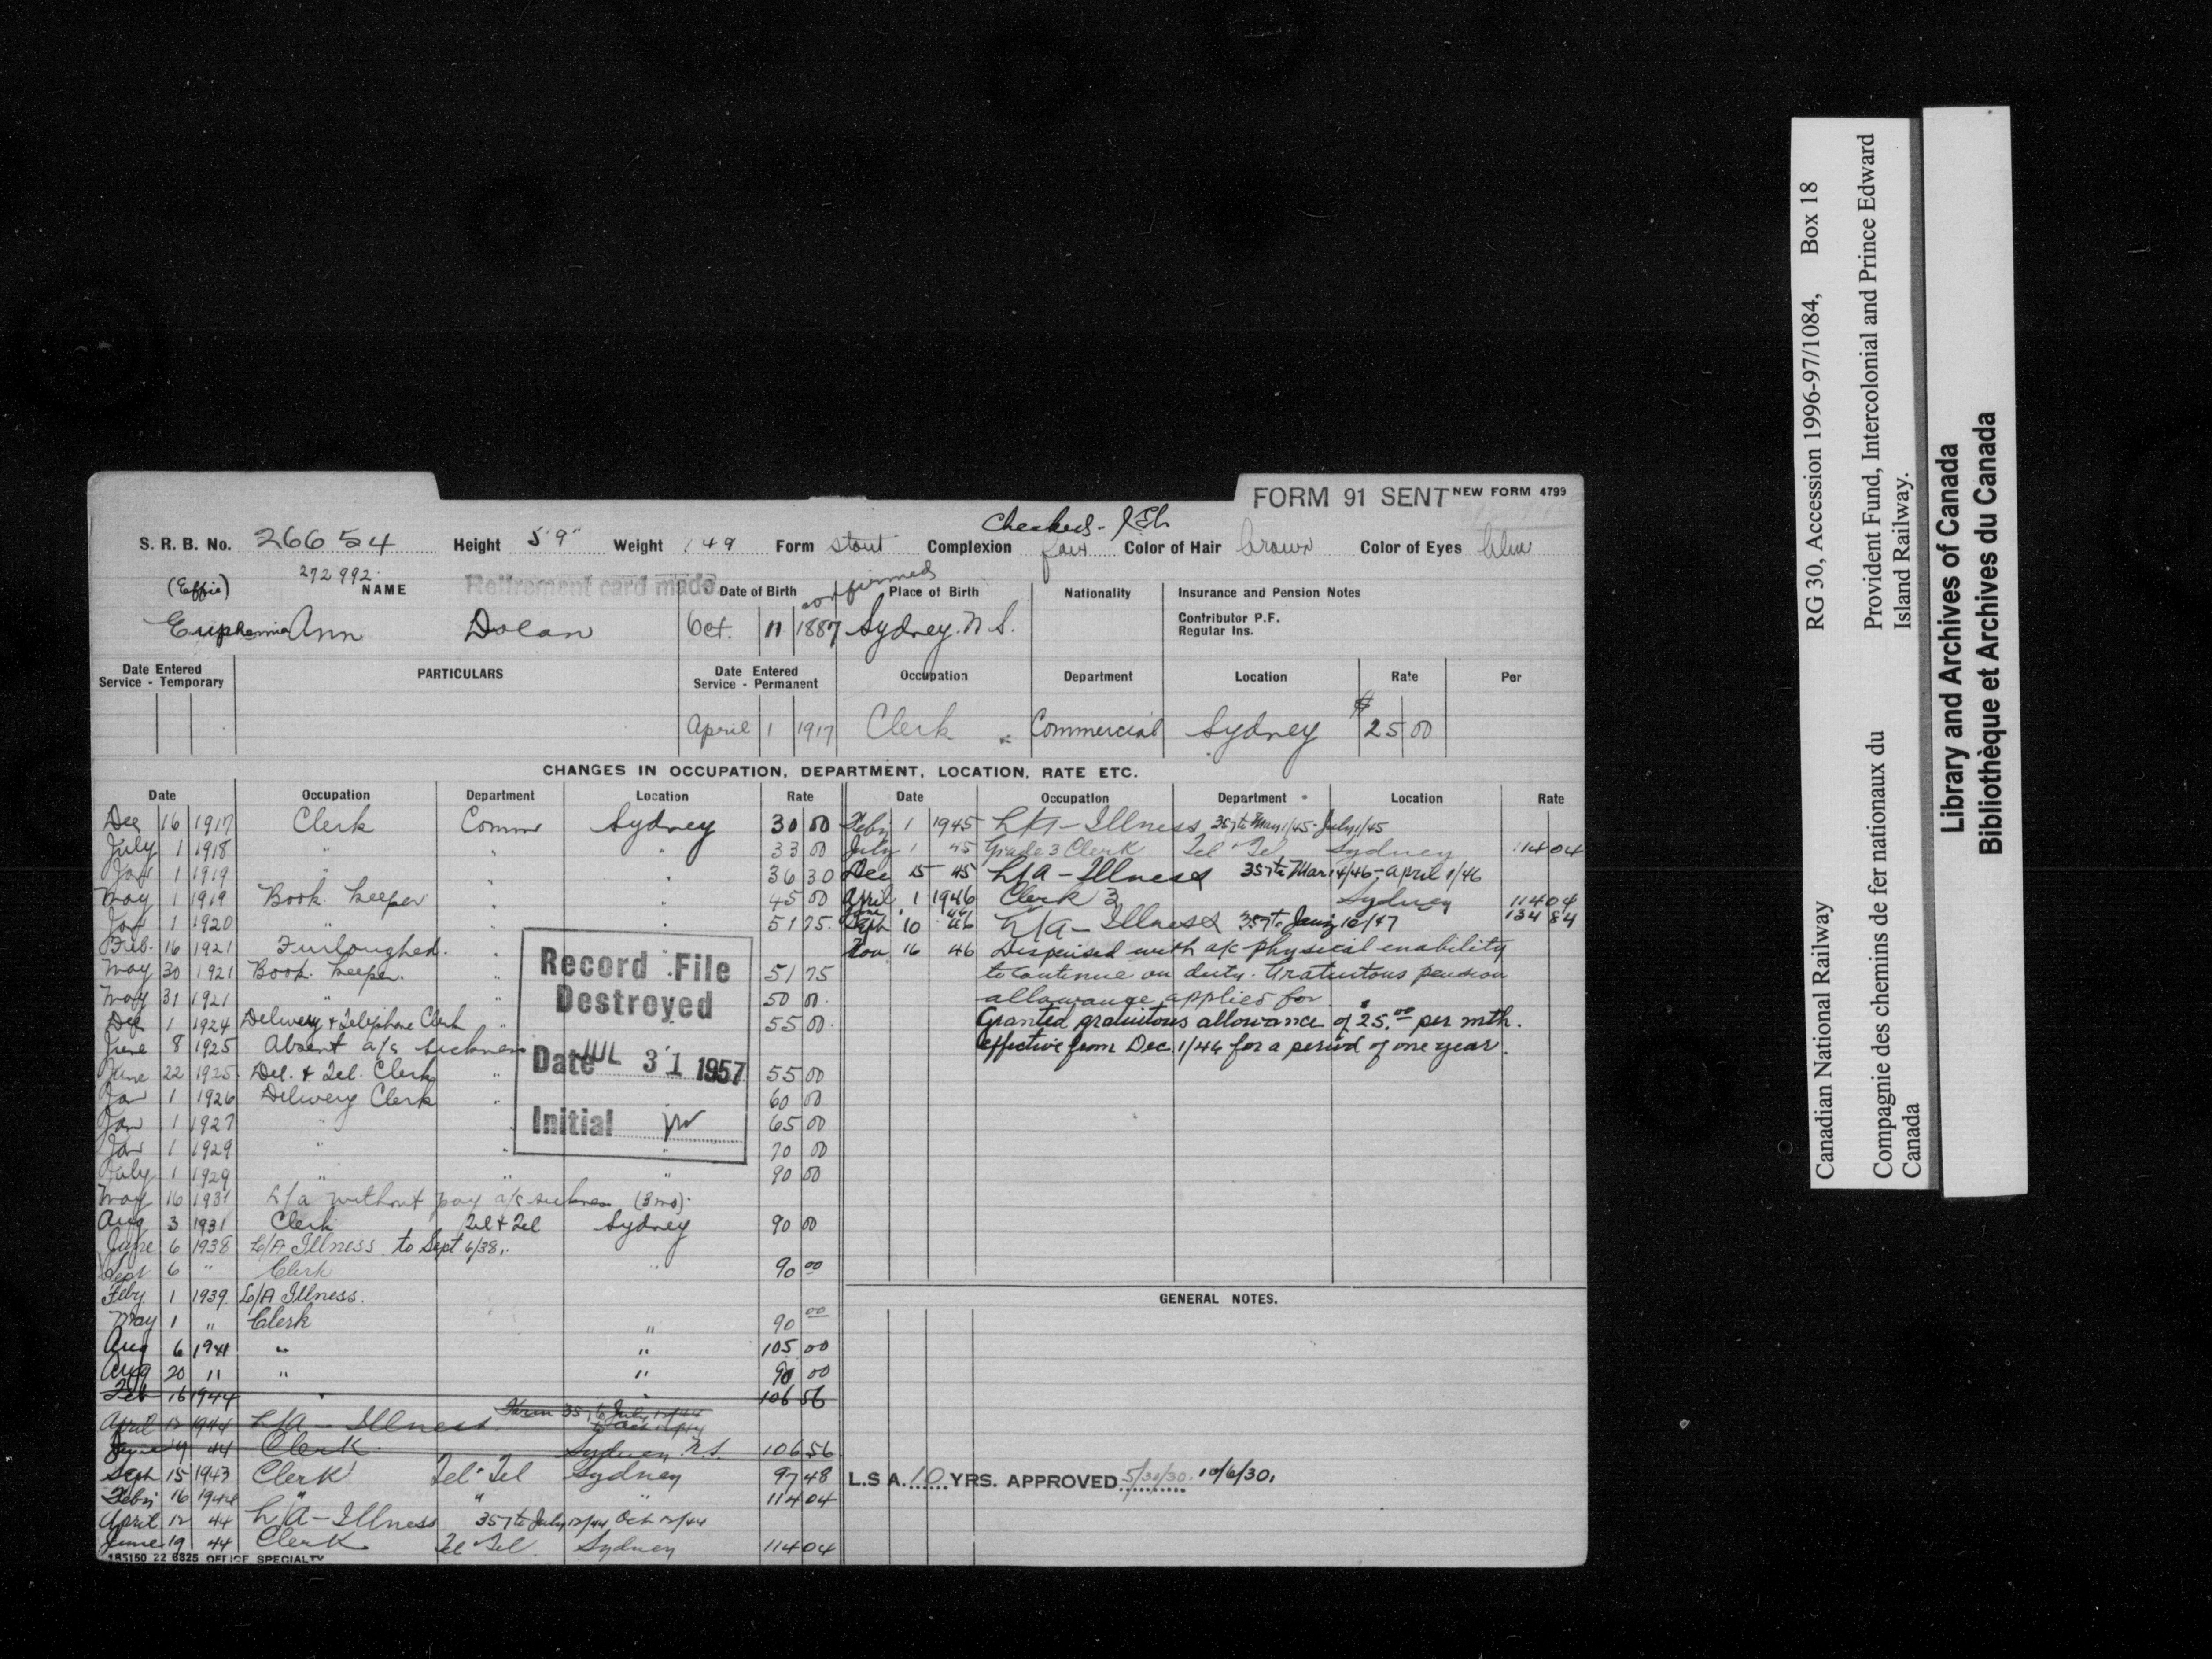 FORM 91 SENT NEW FORM 4799
Checked -
S. R. B. No. 266554 Height 5'9" Weight 149 Form stout Complexion fair Color of Hair brown Color of Eyes blue
(Effie) 272992 NAME Retirement card made Date of Birth confirmed Place of Birth Nationality Insurance and Pension Notes
Euphemia Ann Dolan Oct. 11 1887 Sydney. N S. Contributor P.F.
Regular Ins.
Date Entered Service - Temporary PARTICULARS Date Entered Service - Permanent Occupation Department Location Rate Per
April 1 1917 Clerk Commercial Sydney $25 00
CHANGES IN OCCUPATION, DEPARTMENT, LOCATION, RATE ETC.
Date Occupation Department Location Rate
Dec 16 1917 Clerk Comm Sydney 30 00
July 1 1918 " " " 33 00
Jan 1 1919 " " " 36 30
May 1 1919 Book keeper " " 45 00
Jan 1 1920 " " 51 75
Feb. 16 1921 Furloughed. "
May 30 1921 Book keeper. " 51 75
May 31 1921 " " 50 00
Dec 1 1924 Delivery & Telephone Clerk " 55 00
June 8 1925 Absent a/c sickness
June 22 1925 Del. & Tel. Clerk " 55 00
Jan 1 1926 Delivery Clerk " 60 00
Jan 1 1927 " 65 00
Jan 1 1929 " " " 70 00
July 1 1929 " " " 90 00
May 16 1931 L/a without pay a/c sickness (3 mo).
Aug 3 1931 Clerk Tel & Tel Sydney 90 00
June 6 1938 L/A Illness to Sept. 6/38.
Sept 6 " Clerk " 90 00
Feby 1 1939 L/A Illness.
May 1 " Clerk " 90 00
Aug 6 1941 " " 105 00
Aug 20 " " " 90 00
Feb 16 1944 " " 106 56
April 12 1944 L/A - Illness. Form 357 to July 12/44
to Oct 12/44
June 19 44 Clerk Sydney N.S. 106 56
Sept 15 1943 Clerk Tel & Tel Sydney 97 48
Feby 16 1944 " " " 114 04
April 12 44 L/A - Illness 357 to July 12/44 Oct 12/44
June 19 44 Clerk Tel & Tel. Sydney 114 04
185150 22 6825 OFFICE SPECIALTY
Record File
Destroyed
Date JUL 31 1957
Initial
Date Occupation Department Location Rate
Feby 1 1945 L/A - Illness 357 to May 1/45 - July 1/45
July 1 45 Grade 3 Clerk Tel & Tel Sydney 114 04
Dec 15 45 L/A - Illness 357 to Mar 14/46 - April 1/46
April 1 1946 Clerk 3 Sydney 114 04
June 1 46 134 84
Sept 10 46 L/A - Illness 357 to Jany 10/47
Nov 16 46 Dispensed with a/c physical inability
to continue on duty. Gratuitous pension
allowance applied for
Granted gratuitous allowance of 25.00 per mth.
effective from Dec. 1/46 for a period of one year.
GENERAL NOTES.
L.S A. 10 YRS. APPROVED 5/30/30. 10/6/30.
Canadian National Railway RG 30, Accession 1996-97/1084, Box 18
Compagnie des chemins de fer nationaux du Canada
Provident Fund, Intercolonial and Prince Edward Island Railway.
Library and Archives of Canada
Bibliothèque et Archives du Canada